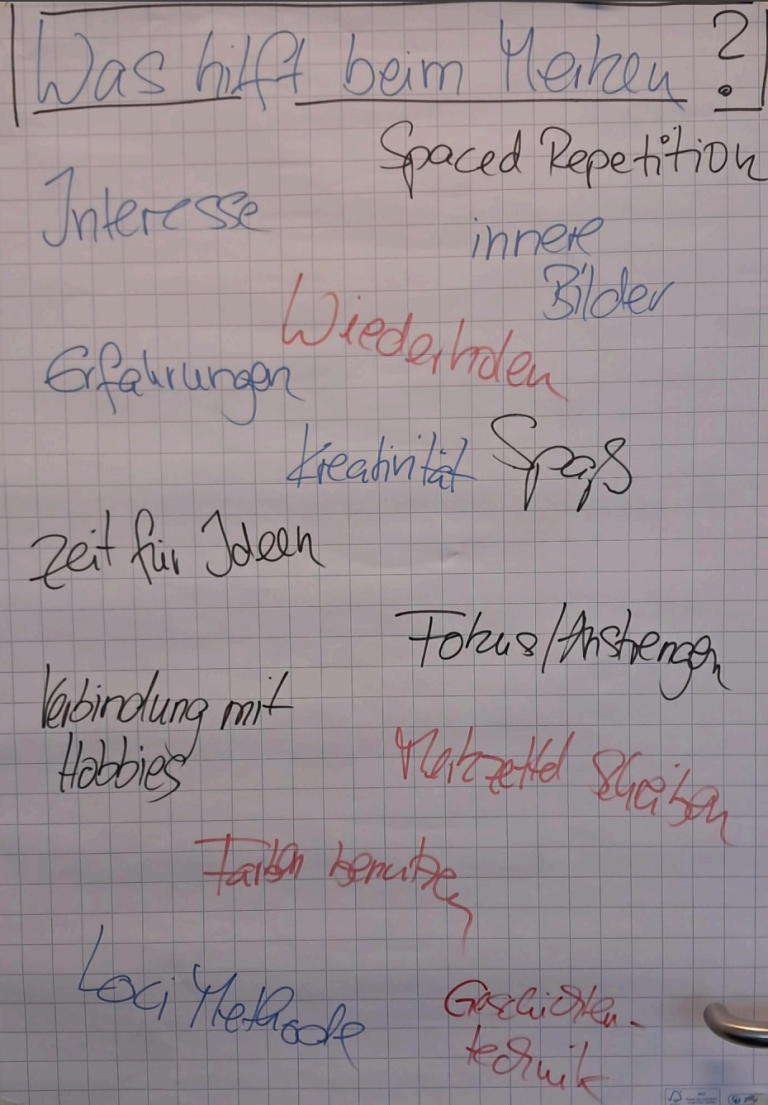 Was hilft beim Merken?
Spaced Repetition
Interesse
innere
Bilder
Wiederholen
Erfahrungen
Kreativität
Spaß
Zeit für Ideen
Fokus/Anstrengen
Verbindung mit
Hobbies
Merkzettel Schreiben
Farben benutzen
Loci Methode
Geschichten-
technik